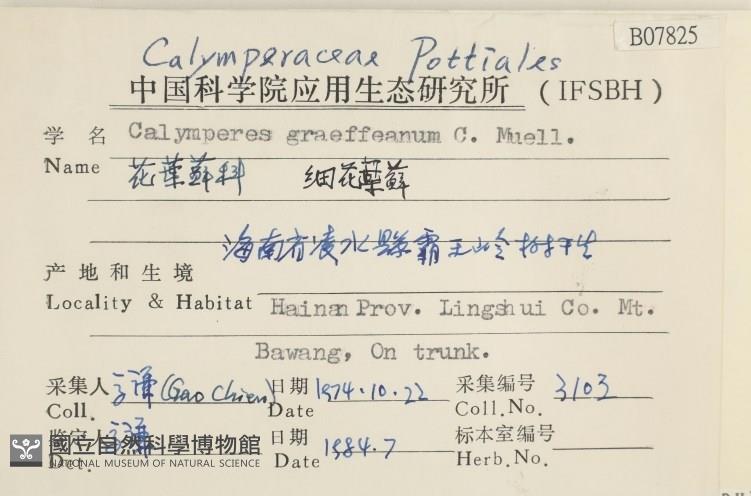 B07825
Calymperaceae Pottiales
中国科学院应用生态研究所 (IFSBH)
学名 Calymperes graeffeanum C. Muell.
Name 花葉蘚科 细花葉蘚
海南省凌水縣霸王岭 树干生
产地和生境
Locality & Habitat Hainan Prov. Lingshui Co. Mt.
Bawang, On trunk.
采集人 高谦 (Gao Chien) 日期 1974.10.22 采集编号 3103
Coll. Date Coll.No.
鉴定人 高谦 日期 1984.7 标本室编号
Det. Date Herb.No.
國立自然科學博物館
NATIONAL MUSEUM OF NATURAL SCIENCE